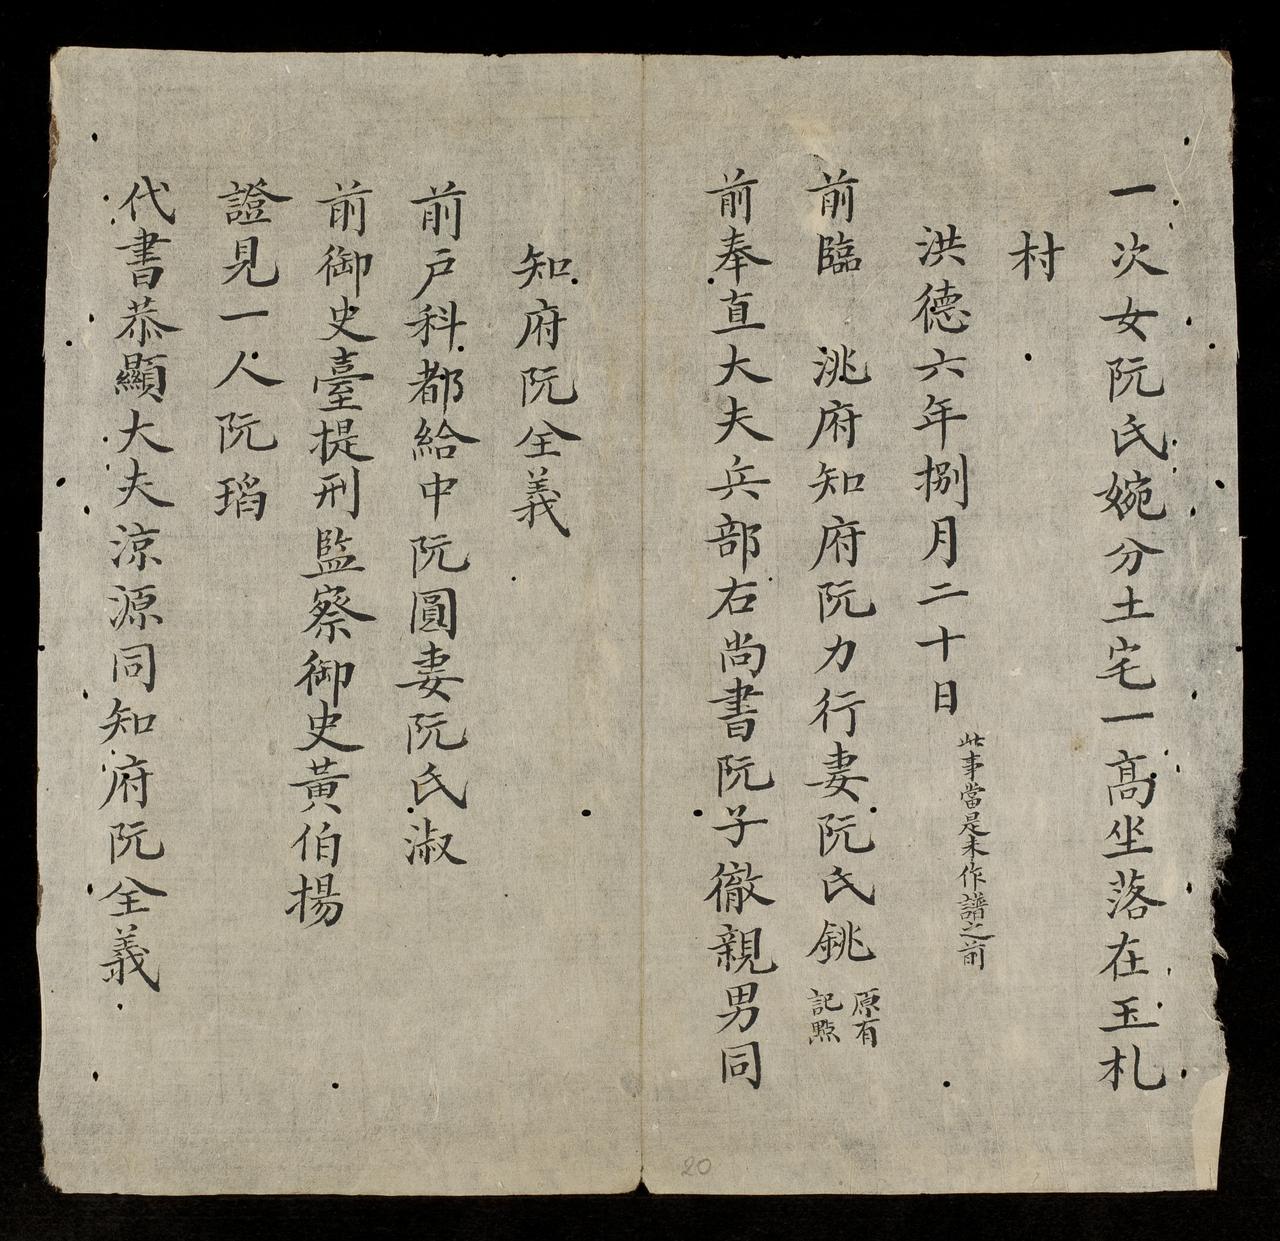 一次女阮氏婉分土宅一高坐落在玉札
村
洪德六年捌月二十日
此事當是未作譜之前
前臨洮府知府阮力行妻阮氏銚
原有
記點
前奉直大夫兵部右尚書阮子徹親男同
知府阮全義
前戶科都給中阮圓妻阮氏淑
前御史臺提刑監察御史黃伯揚
證見一人阮瑫
代書恭顯大夫涼源同知府阮全義
20